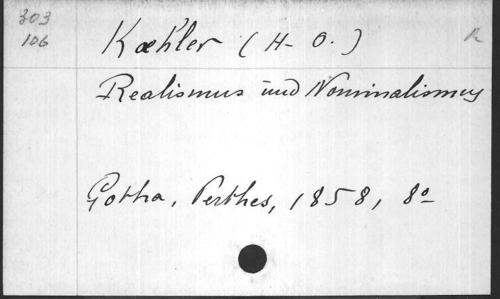 303
106
Kœhler (H-O.)
R
Realismus und Nominalismus
Gotha, Perthes, 1858, 8º